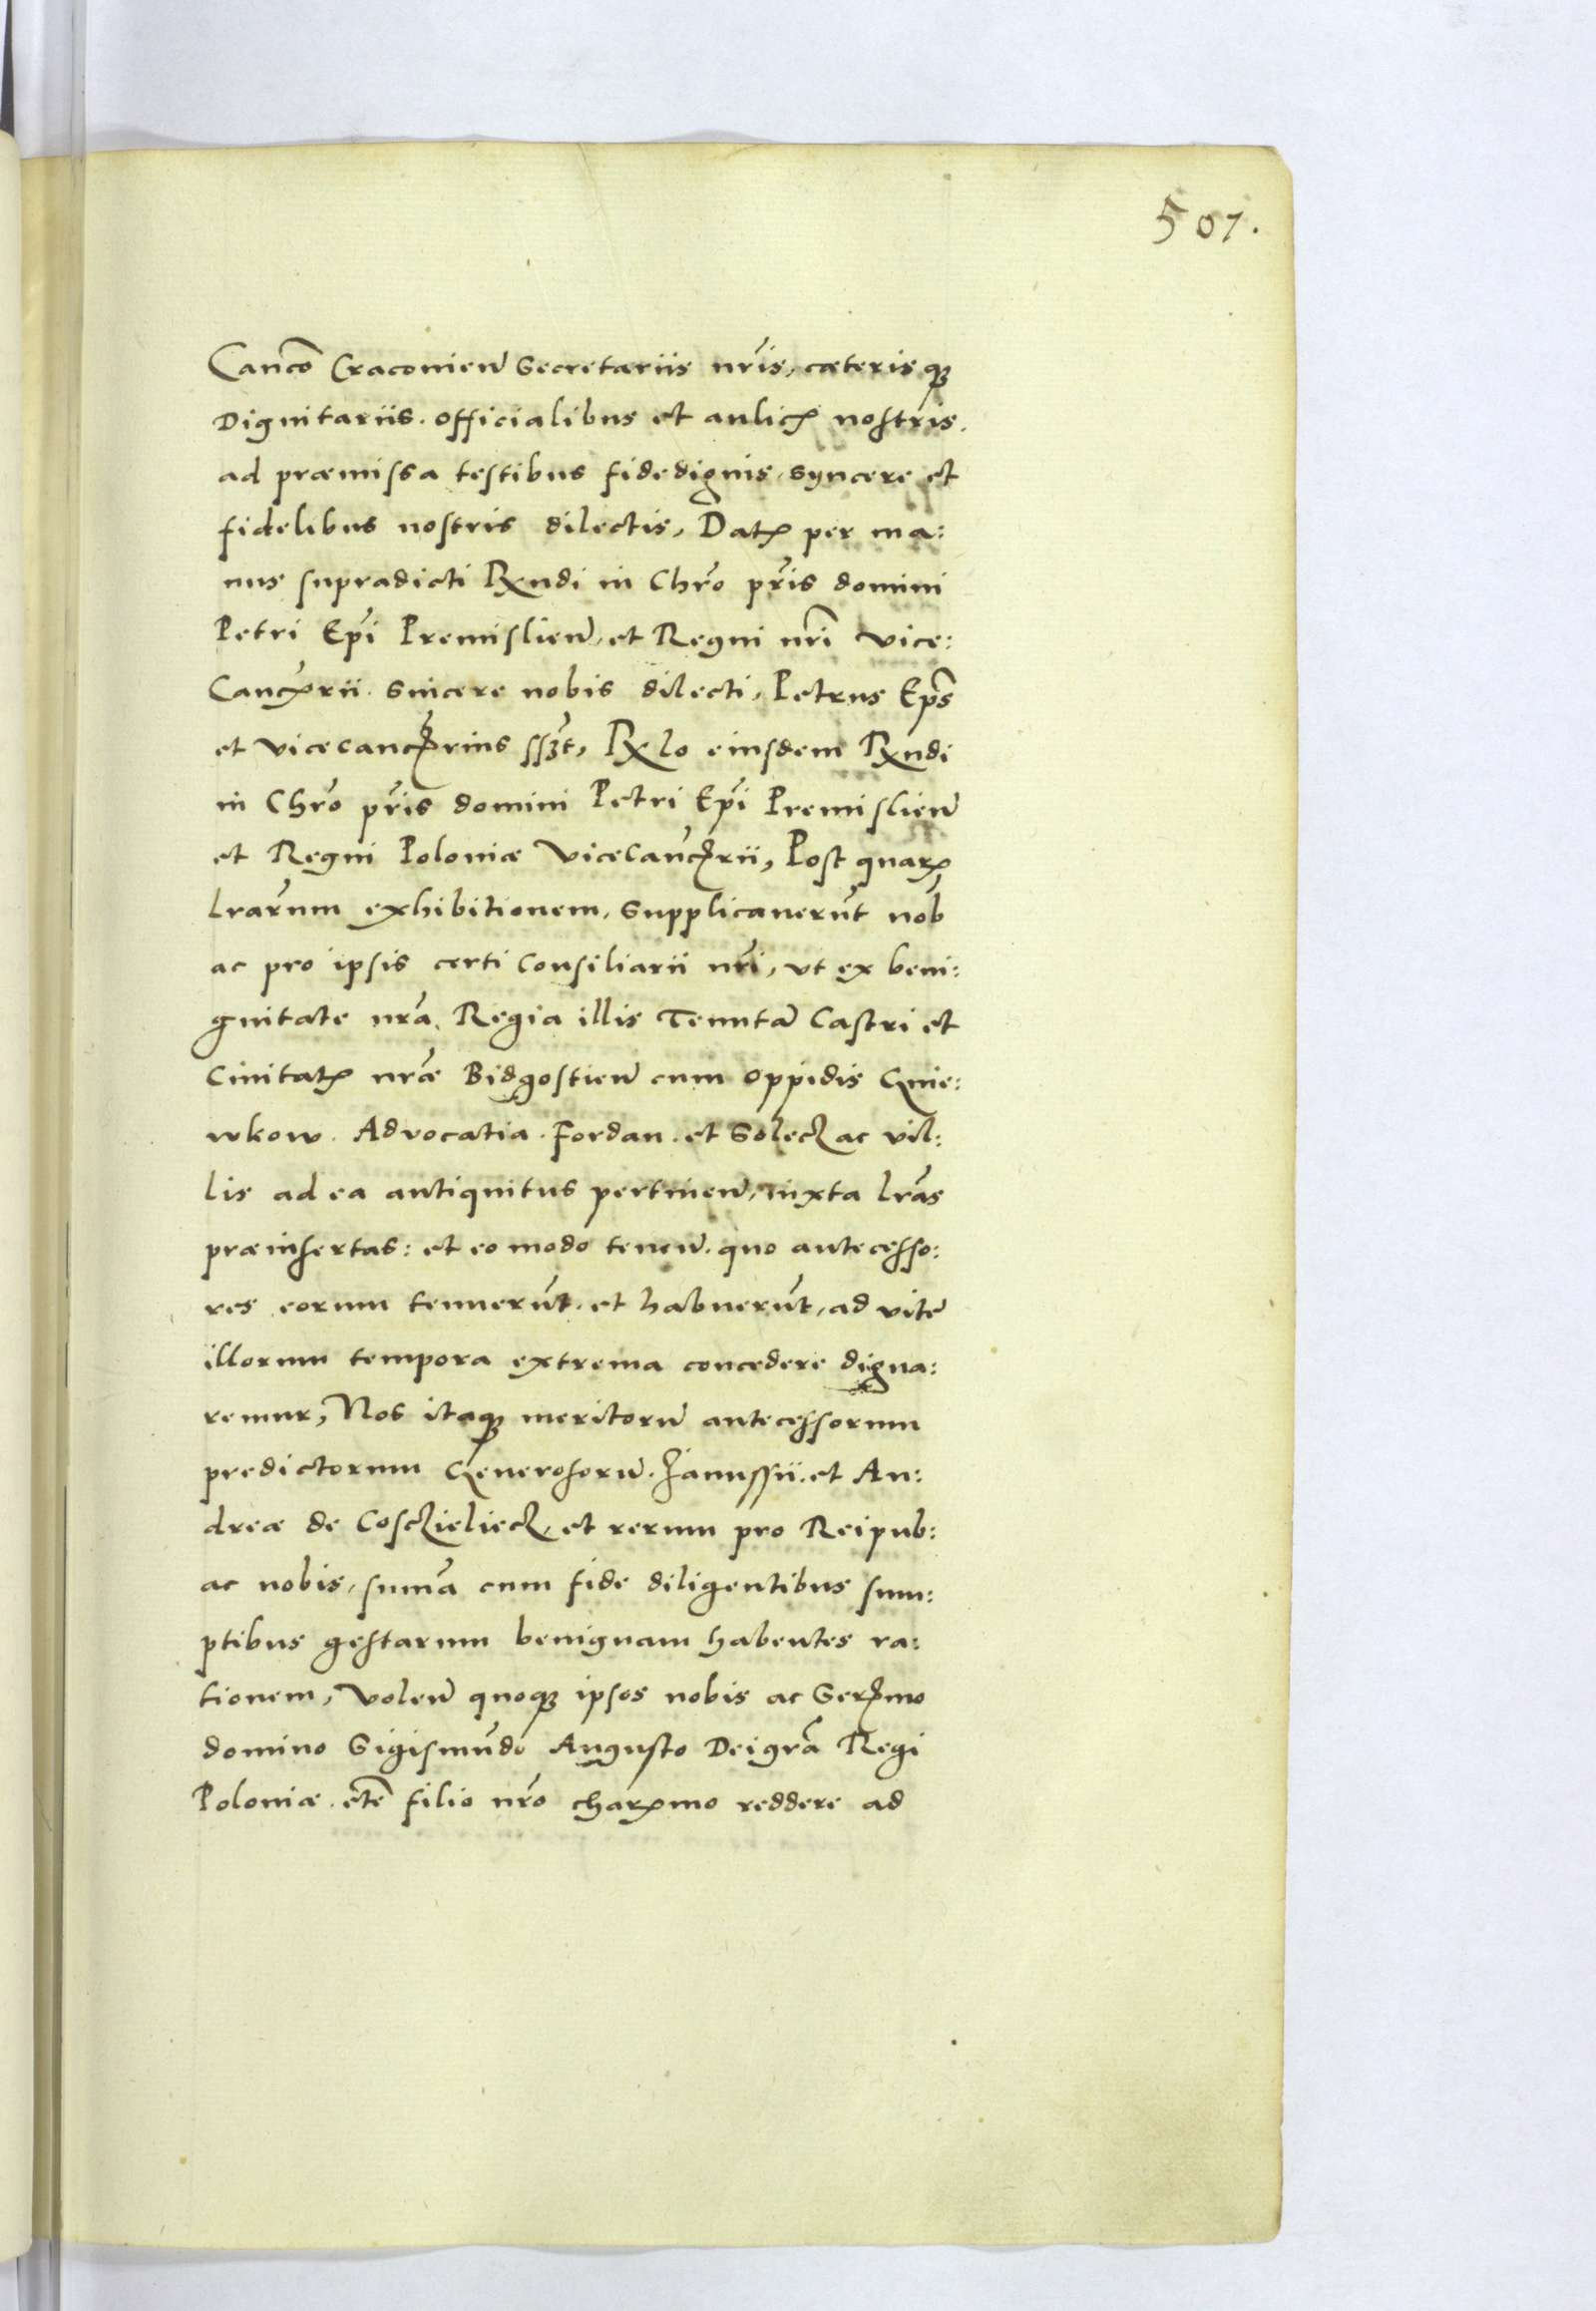 507.
Canco Cracovien Secretariis nris, cæterisq
Dignitariis. officialibus et aulicis nostris.
ad præmissa testibus fidedignis, syncere et
fidelibus nostris dilectis, Datum per ma:
nus supradicti Rndi in Chro pris domini
Petri Epi Premislien, et Regni nri vice:
Cancrii. sincere nobis dilecti, Petrus Eps
et vicecancrius sszt, Rlo eiusdem Rndi
in Chro pris domini Petri Epi Premislien
et Regni Poloniæ Vicecancrii, Post quarum
lrarum exhibitionem, supplicaverut nob
ac pro ipsis certi Consiliarii nri, vt ex beni:
gnitate nra, Regia illis Tenuta Castri et
Civitatis nræ Bidgostien cum oppidis Gnie:
wkow. Advocatia. Fordan. et Solecz ac vil:
lis ad ea antiquitus pertinen, iuxta lras
præinsertas: et eo modo tenen. quo antecesso:
res eorum tenuerut. et habuerut, ad vite
illorum tempora extrema concedere digna:
remur, Nos itaq meritoru antecessorum
predictorum Generosoru. Janussii. et An:
dreæ de Cosczielecz, et rerum pro Reipub:
ac nobis, suma cum fide diligentibus sum:
ptibus gestarum benignam habentes ra:
tionem, Volen quoq ipsos nobis ac Sermo
domino Sigismudo Augusto Dei gra Regi
Poloniæ. etc filio nro charmo reddere ad